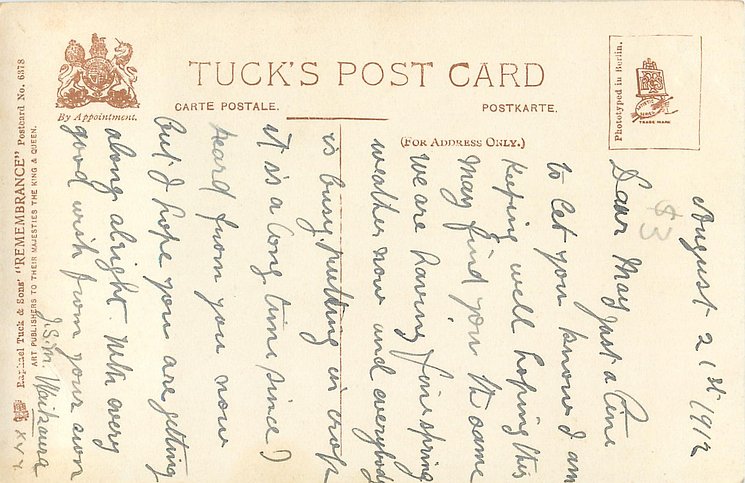 TUCK'S POST CARD
CARTE POSTALE.
POSTKARTE.
By Appointment.
(FOR ADDRESS ONLY.)
Phototyped in Berlin.
TRADE MARK
Raphael Tuck & Sons' "REMEMBRANCE" Postcard No. 6378
ART PUBLISHERS TO THEIR MAJESTIES THE KING & QUEEN.
$3
August 21st 1912
Dear May Just a line
to let you know I am
keeping well hoping this
May find you the same
We are having fine spring
weather now and everybody
is busy putting in crops
it is a long time since I
heard from you now
but I hope you are getting
along alright. With every
good wish from your own
J.S.M. Waikaura